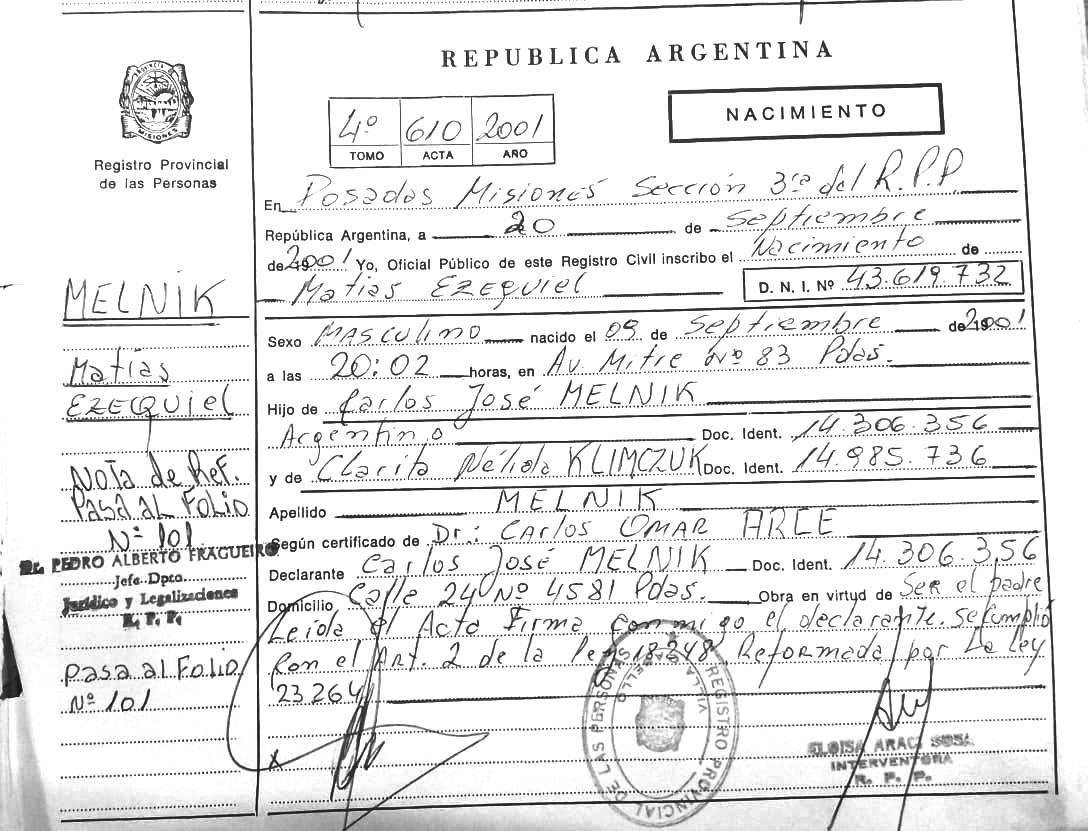 REPUBLICA ARGENTINA
NACIMIENTO
4º 610 2001
TOMO ACTA AÑO
PROVINCIA MISIONES
Registro Provincial
de las Personas
En Posadas Misiones Sección 3ra del R.P.P
República Argentina, a 20 de Septiembre
de 2001 Yo, Oficial Público de este Registro Civil inscribo el Nacimiento de
Matias EZEQUIEL D. N. I. Nº 43.619.732
Sexo MASCULINO nacido el 09 de Septiembre de 2001
a las 20:02 horas, en Av. Mitre Nº 83 Pdas.
Hijo de Carlos José MELNIK
Argentino Doc. Ident. 14.306.356
y de Clarita Nélida KLIMCZUK Doc. Ident. 14.985.736
Apellido MELNIK
Según certificado de Dr.: CARLOS OMAR ARCE
Declarante Carlos José MELNIK Doc. Ident. 14.306.356
Domicilio Calle 24 Nº 4581 Pdas. Obra en virtud de Ser el padre
Leída el Acta Firma conmigo el declarante. Se cumplió
Con el Art. 2 de la Ley 18.248, Reformada por La Ley
23.264
MELNIK
Matías
EZEQUIEL
Nota de Ref.
Pasa al Folio
Nº 101
Dr. PEDRO ALBERTO FRAGUEIRO
Jefe Dpto.
Jurídico y Legalizaciones
R. P. P.
Pasa al Folio
Nº 101
x
REGISTRO PROVINCIAL DE LAS PERSONAS
VILLA SARMIENTO
ELOISA ARACI SOSA
INTERVENTORA
R. P. P.